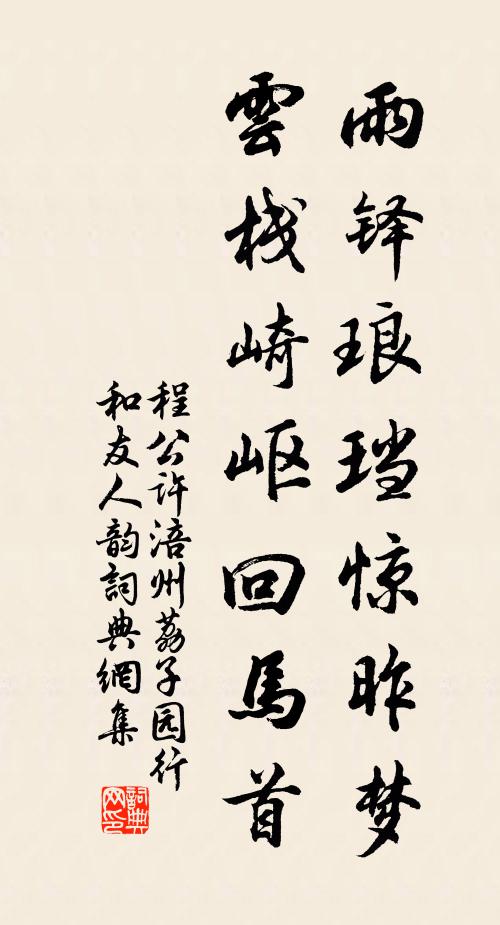 雨铎琅珰惊昨梦
雲栈崎岖回馬首
程公许涪州荔子园行
和友人韵詞典網集
詞典
网印